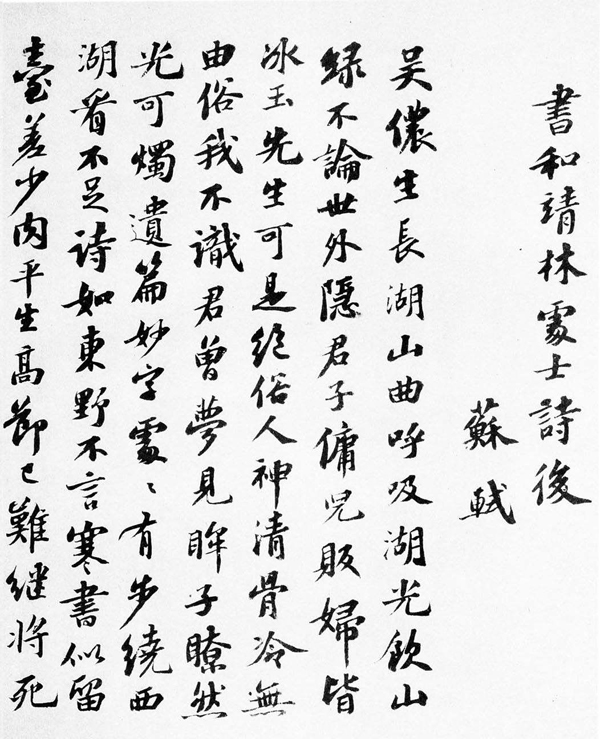 書和靖林處士詩後
蘇軾
吴儂生長湖山曲呼吸湖光飲山
緑不論世外隱君子傭兒販婦皆
冰玉先生可是絕俗人神清骨冷無
由俗我不識君曾夢見眸子瞭然
光可燭遺篇妙字處〻有步繞西
湖看不足詩如東野不言寒書似留
臺差少肉平生高節已難繼將死